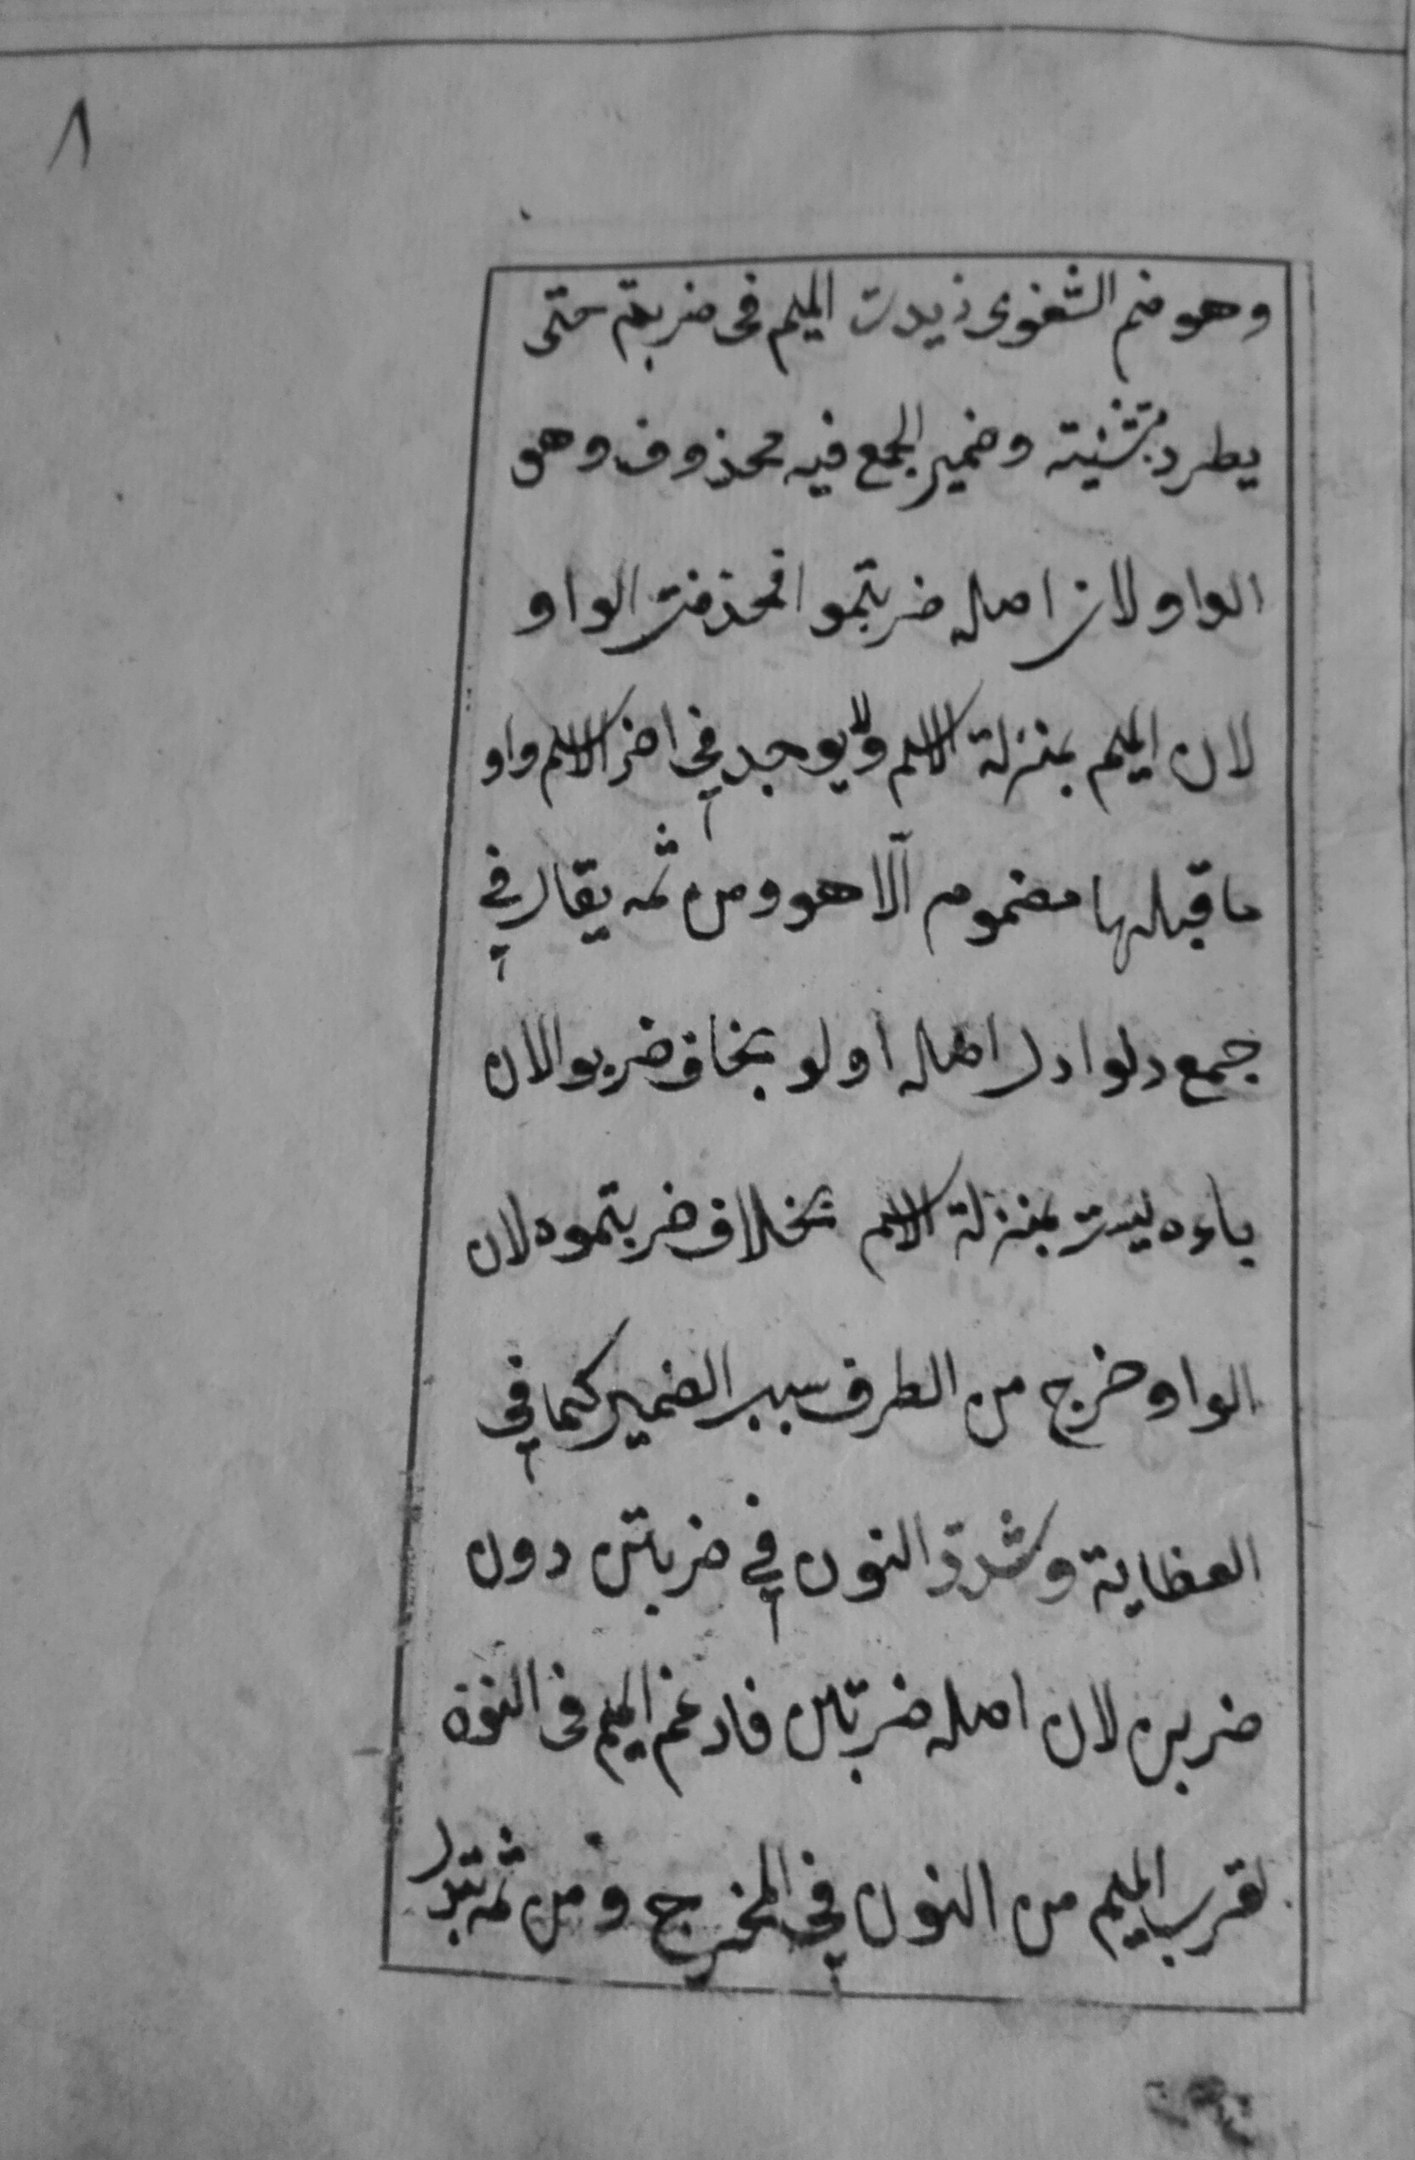 ٨
وهو ضم الشفوى زيدت الميم فى ضربتم حتى
يطرد بتثنيته وضمير الجمع فيه محذوف وهو
الواو لان اصله ضربتموا فحذفت الواو
لان الميم بمنزلة الاسم ولا يوجد في اخر الاسم واو
ما قبلها مضموم الّا هو ومن ثمه يقال في
جمع دلو ادل اصله ادلو بخلاف ضربوا لان
باءه ليست بمنزلة الاسم بخلاف ضربتموه لان
الواو خرج من الطرف سبب الضمير كما في
العظاية وشدد النون في ضربتن دون
ضربن لان اصله ضربتمن فادغم الميم فى النون
لقرب الميم من النون في المخرج ومن ثمه تبدل